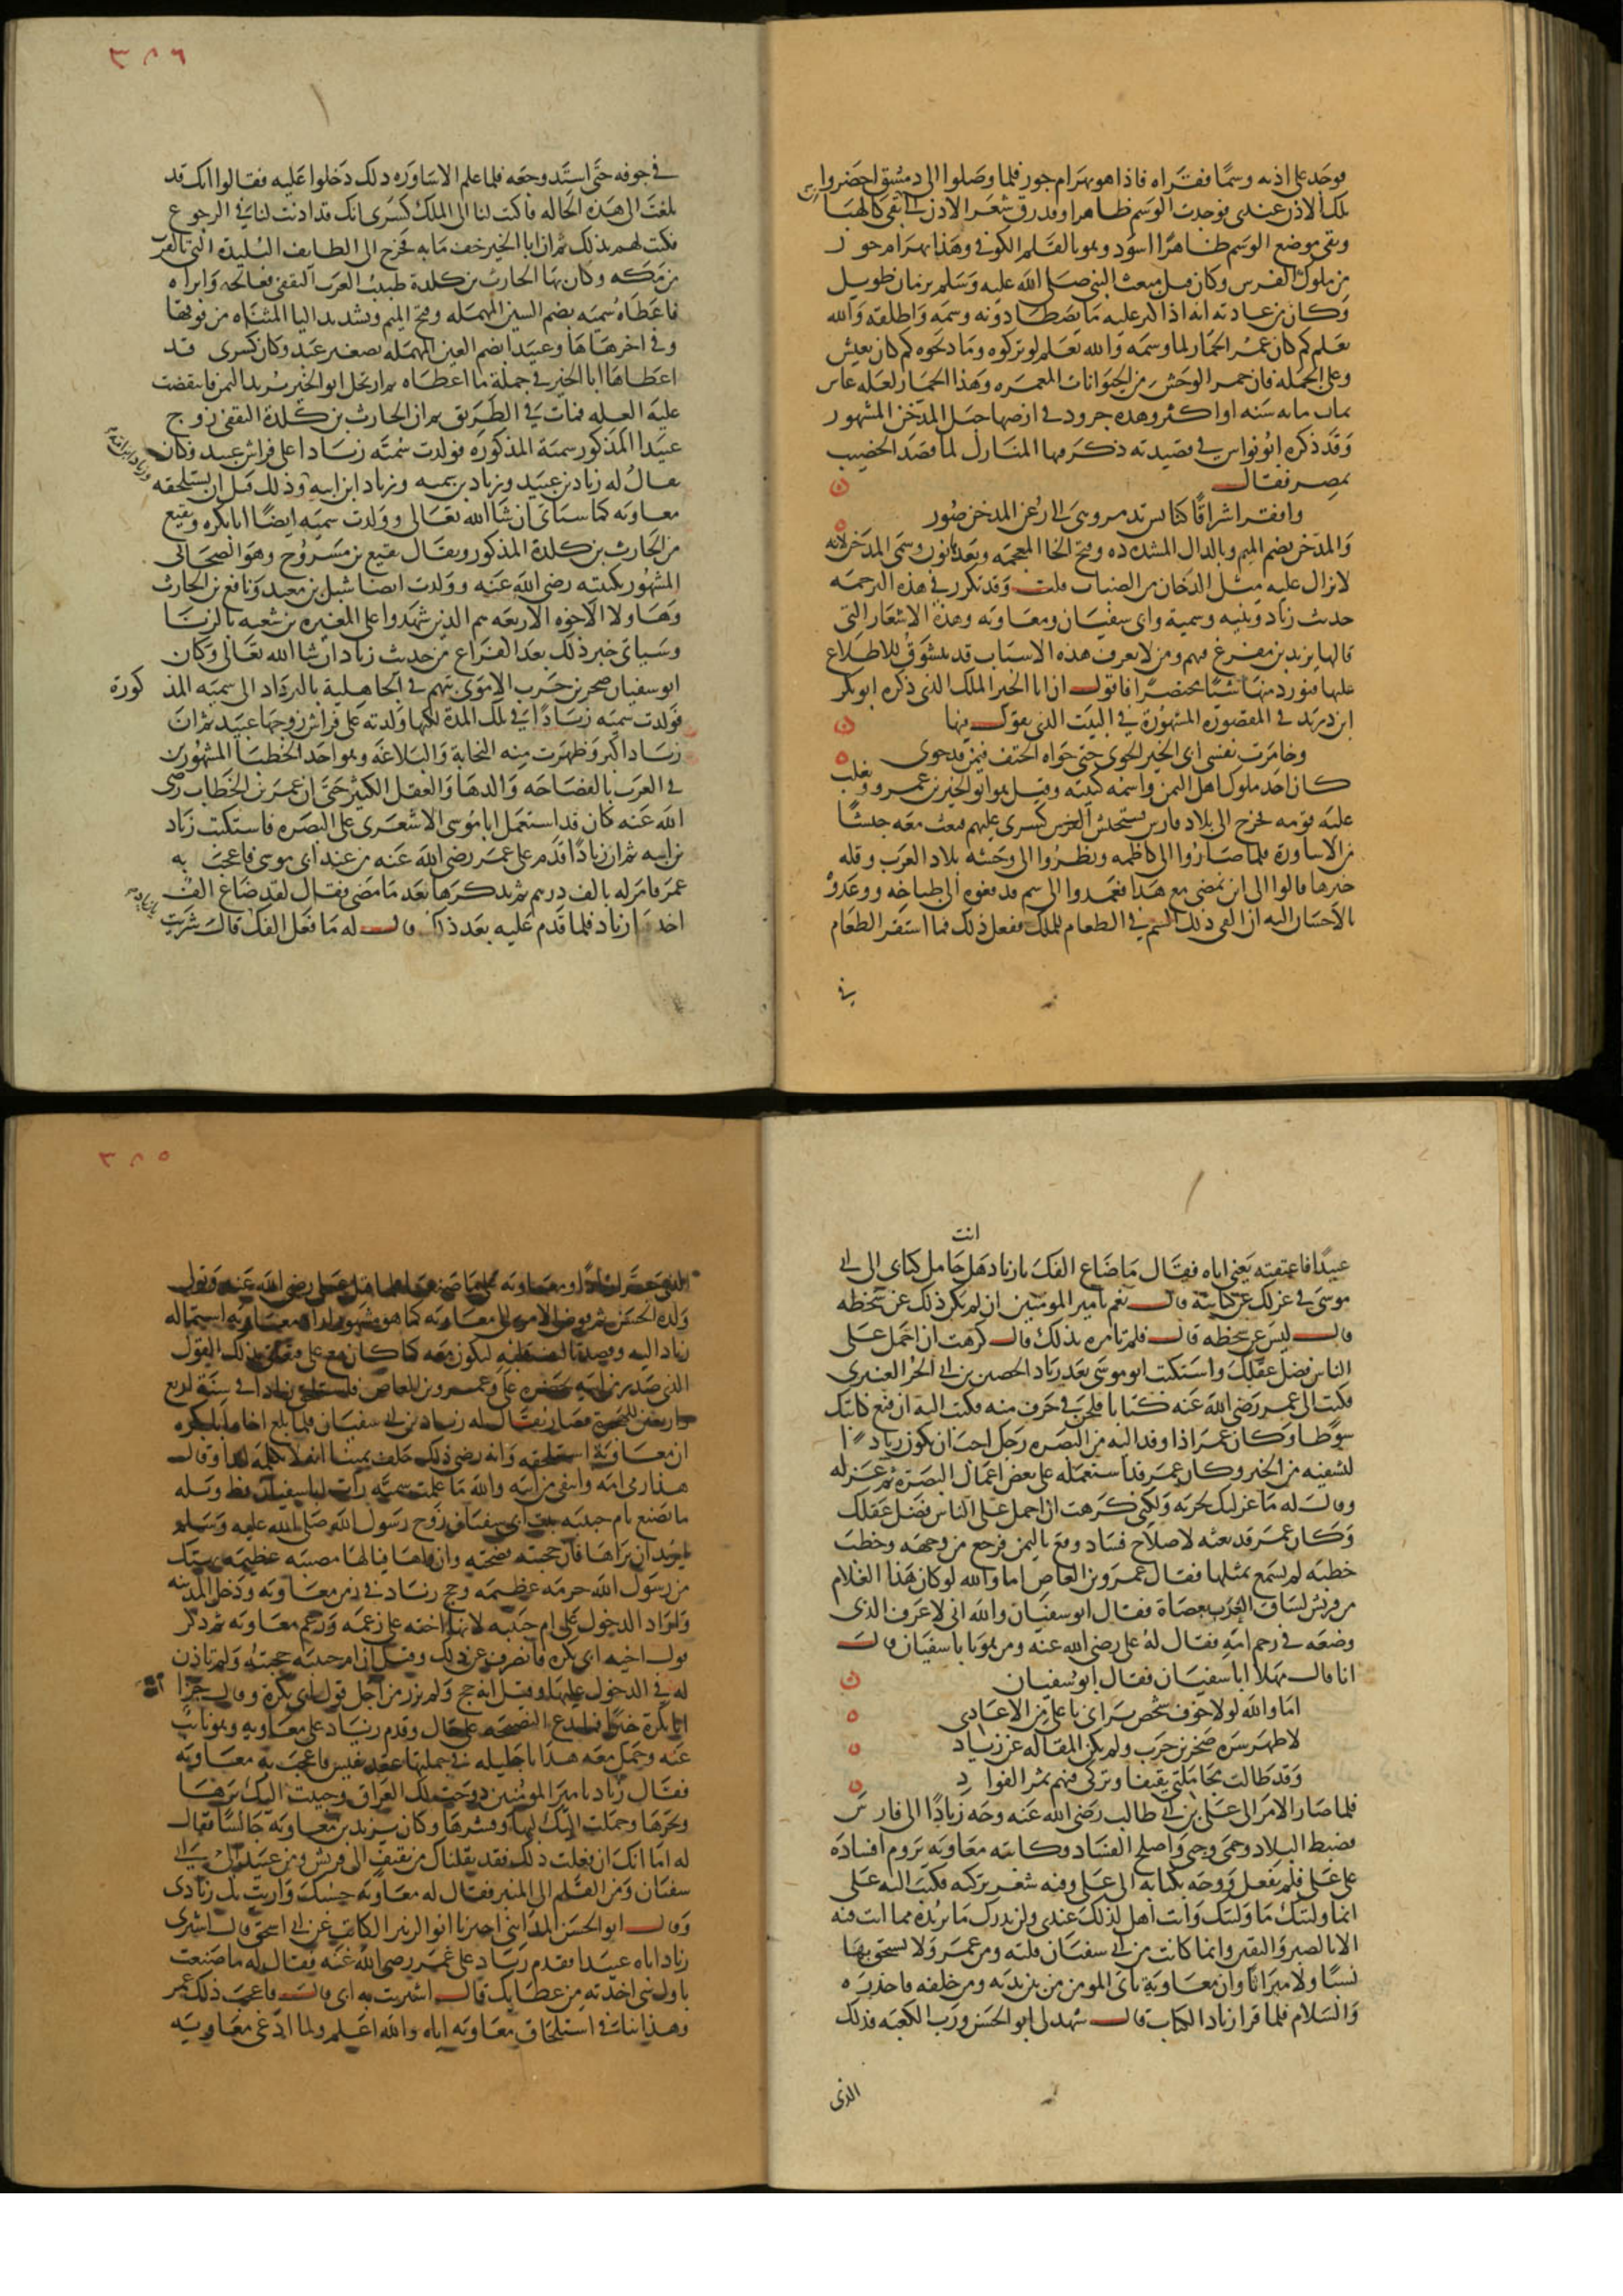 فوجد على اذنه وسمًا فقراه فاذا هو بهرام جور فلما وصلوا الى دمشق احضروا
تلك الاذن عندى فوجدت الوسم ظاهرا وقد رق شعر الاذن الى ان بقى كالهبا
وبقى موضع الوسم ظاهرًا اسود وهو بالقلم الكوفى وهذا بهرام جور
من ملوك الفرس وكان قبل مبعث النبى صلى الله عليه وسلم بزمان طويل
وكان من عادته انه اذا كثر عليه ما يصطادونه وسمه واطلقه والله
يعلم كم كان عمر الحمار لما وسمه والله يعلم لو تركوه وما ذبحوه كم كان يعيش
وعلى الجمله فان حمر الوحش من الحيوانات المعمره وهذا الحمار لعله عاش
ثمان مايه سنه او اكثر وهذه جرود فى ارضها جبل المدخن المشهور
وقد ذكره ابو نواس فى قصيدته ذكر فيها المنازل لما قصد الخصيب
بمصر فقال
وافقر اشراقًا كنايس تدمر وهى الى رعن المدخن صور
والمدخن بضم الميم وبالدال المشدده وفتح الخا المعجمه وبعدها نون وسمى المدخن لانه
لا تزال عليه مثل الدخان من الضباب قلت وقد تكرر فى هذه الترجمه
حديث زياد وبنيه وسمية وابى سفيان ومعاويه وهذه الاشعار التى
قالها يزيد بن مفرغ فيهم ومن لا يعرف هذه الاسباب قد يتشوق للاطلاع
عليها فنورد منها شيًا مختصرًا فاقول ان ابا الخير الملك الذى ذكره ابو بكر
ابن دريد فى المقصورة المشهورة فى البيت الذى يقول فيها
وخامرت نفسى ابى الخير الجوى حتى حواه الحتف فيمن قد حوى
كان احد ملوك اهل اليمن واسمه كنيته وقيل هو ابو الخير بن عمرو وتغلب
عليه قومه فخرج الى بلاد فارس يستجيش كسرى عليهم فبعث معه جيشًا
من الاساورة فلما صاروا الى كاظمه ونظروا الى وحشه بلاد العرب وقله
خيرها قالوا الى اين نمضى مع هذا فعمدوا الى سم فدفعوه الى طباخه ووعدوْ
بالاحسان اليه ان القى ذلك السم فى الطعام للملك ففعل ذلك فما استقر الطعام
فى
٣٨٦
فى جوفه حتى اشتد وجعه فلما علم الاساوره ذلك دخلوا عليه فقالوا انك قد
بلغت الى هذه الحاله فاكتب لنا الى الملك كسرى انك قد اذنت لنا فى الرجوع
فكتب لهم بذلك ثم ان ابا الخير خف ما به فخرج الى الطايف البليدة التى بالقرب
من مكه وكان بها الحارث بن كلدة طبيب العرب الثقفى فعالجه وابراه
فاعطاه سميه بضم السين المهمله وفتح الميم وتشديد اليا المثناه من فوقها
وفى اخرها ها وعبيدا بضم العين المهمله تصغير عبد وكان كسرى قد
اعطاها ابا الخير فى جملة ما اعطاه ثم ارتحل ابو الخير يريد اليمن فانتقضت
عليه العله فمات فى الطريق ثم ان الحارث بن كلدة الثقفى زوج
عبيدا المذكور سمية المذكورة فولدت سميّه زيادا على فراش عبيد وكان
يقال له زياد بن عبيد وزياد بن سميه وزياد ابن ابيه وذلك قبل ان يستلحقه
معاويه كما سياتى ان شا الله تعالى وولدت سميه ايضًا ابا بكره ونفيع
من الحارث بن كلدة المذكور ويقال نفيع بن مسروح وهو الصحابى
المشهور بكنيته رضى الله عنه وولدت ايضا شبل بن معبد ونافع بن الحارث
وهاولا الاخوه الاربعه هم الذين شهدوا على المغيره بن شعبه بالزنا
وسياتى خبر ذلك بعد الفراغ من حديث زياد ان شا الله تعالى وكان
ابو سفيان صخر بن حرب الاموى يتهم فى الجاهلية بالترداد الى سميه المذكورة
فولدت سميه زيادًا فى تلك المدة لكنها ولدته على فراش زوجها عبيد ثم ان
زيادا كبر وظهرت منه النجابة والبلاغه وهو احد الخطبا المشهورين
فى العرب بالفصاحه والدها والعقل الكثير حتى ان عمر بن الخطاب رضى
الله عنه كان قد استعمل ابا موسى الاشعرى على البصره فاستكتب زياد
بن ابيه ثم ان زيادًا قدم على عمر رضى الله عنه من عند ابى موسى فاعجب به
عمر فامر له بالف درهم ثم تذكرها بعد ما مضى فقال لقد ضاع الف
اخذها زياد فلما قدم عليه بعد ذلك قال له ما فعل الفك قال اشتريت
انت
عبيدًا فاعتقته يعنى اباه فقال ما ضاع الفك يا زياد هل حامل كتابى الى ابى
موسى فى عزلك عن كتابته قال نعم يا مير المومنين ان لم يكن ذلك عن سخطه
قال ليس عن سخطه قال فلم تامره بذلك قال كرهت ان احمل على
الناس فضل عقلك واستكتب ابو موسى بعد زياد الحصين بن ابى الحر العنبرى
فكتب الى عمر رضى الله عنه كتابا فلحن فى حرف منه فكتب اليه ان قنع كاتبك
سوطا وكان عمر اذا وفد اليه من البصره رجل احب ان يكون زيادًا
لشفيه من الخبر وكان عمر قد استعمله على بعض اعمال البصرة ثم عزله
وقال له ما عزلتك لخزيه ولكنى كرهت ان احمل على الناس فضل عقلك
وكان عمر قد بعثه لاصلاح فساد وقع باليمن فرجع من وجهه وخطب
خطبه لم يسمع بمثلها فقال عمرو بن العاص اما والله لو كان هذا الغلام
من قريش لساق العرب بعصاة فقال ابو سفيان والله انى لاعرف الذى
وضعه فى رحم امه فقال له على رضى الله عنه ومن هو يا با سفيان قال
انا قال مهلا ابا سفيان فقال ابو سفيان
اما والله لولا خوف شخص يرانى يا على من الاعادى
لاظهر سره صخر بن حرب ولم يكن المقاله عن زياد
وقد طالت مجاملتى ثقيفا وتركى فيهم ثمر الفواد
فلما صار الامر الى على بن ابى طالب رضى الله عنه وجه زيادًا الى فارس
فضبط البلاد وحمى وجبى واصلح الفساد وكاتبه معاويه يروم افساده
على على فلم يفعل ووجه بكتابه الى على وفيه شعر تركته فكتب اليه على
انما وليتك ما وليتك وانت اهل لذلك عندى ولن تدرك ما تريده مما انت فيه
الا بالصبر واليقين وانما كانت من ابى سفيان فلته زمن عمر ولا تستحق بها
نسبًا ولا ميراثا وان معاوية ياتى المومن من بين يديه ومن خلفه فاحذره
والسلام فلما قرا زياد الكتاب قال شهد لى ابو الحسن ورب الكعبه فذلك
الذى
٣٨٥
ولده الحسن ثم فوض الامر الى معاويه كما هو مشهور اراد معاويه استمالة
زياد اليه وقصد تاليف قلبه ليكون معه كما كان مع على فتعلق بذلك القول
الذى صدر من ابيه بحضره على وعمرو بن العاص فاستلحق زيادا فى سنة اربع
واربعين للهجرة فصار يقال له زياد بن ابى سفيان فلما بلغ اخاه ابا بكره
ان معاوية استلحقه وانه رضى ذلك حلف يمينا انه لا يكلمه ابدا وقال
هذا زنى امه وانتفى من ابيه والله ما علمت سميّه رات ابا سفيان قط ويله
ما يصنع بام حبيبه بنت ابى سفيان زوج رسول الله صلى الله عليه وسلم
ايريد ان يراها فان حجبته فضحته وان راها فيالها مصيبه عظيمه يهتك
من رسول الله حرمه عظيمه وحج زياد فى زمن معاويه ودخل المدينه
واراد الدخول على ام حبيبه لانها اخته على زعمه وزعم معاويه ثم ذكر
قول اخيه ابى بكره فانصرف عن ذلك وقيل ان ام حبيبه حجبته ولم تاذن
له فى الدخول عليها وقيل انه حج ولم يزر من اجل قول ابى بكرة وقال جزا
ابا بكرة خيرًا فما يدع النصيحه على حال وقدم زياد على معاويه وهو نايب
عنه وحمل معه هدايا جليله من جملتها عقد نفيس فاعجب به معاويه
فقال زياد يا مير المومنين دوخت لك العراق وجبيت اليك برها
وبحرها وحملت اليك لبها وقشرها وكان يزيد بن معاويه جالسًا فقال
له اما انك ان فعلت ذلك فقد نقلناك من ثقيف الى قريش ومن عبيد الى ابى
سفيان ومن القلم الى المنبر فقال له معاويه حسبك واريت بك زنادى
وقال ابو الحسن المداينى اخبرنا ابو الزبير الكاتب عن ابى اسحق قال اشترى
زياد اباه عبيدا فقدم زياد على عمر رضى الله عنه فقال له ما صنعت
باول شى اخذته من عطايك قال اشتريت به ابى قال فاعجب ذلك عمر
وهذا ينافى استلحاق معاويه اياه والله اعلم ولما ادّعى معاويه